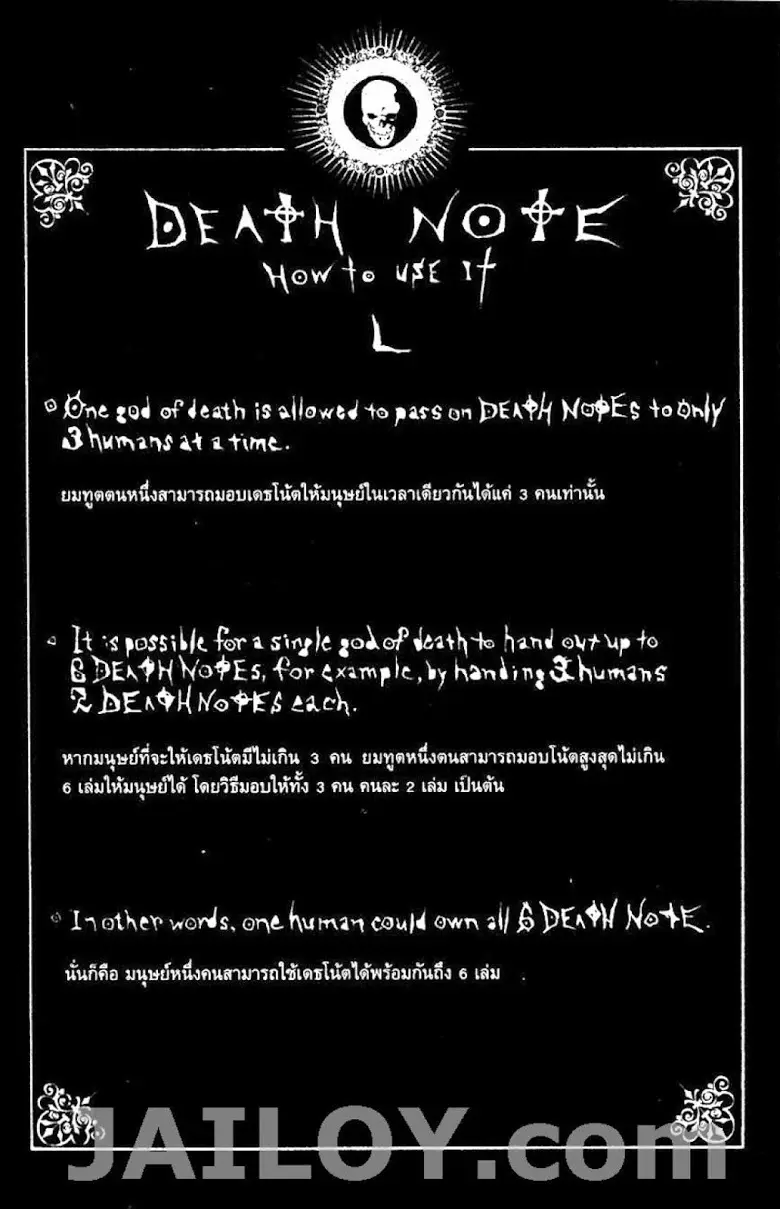 DEATH NOTE
HOW to USE It
L
One god of death is allowed to pass on DEATH NOTEs to only
3 humans at a time.
ยมทูตตนหนึ่งสามารถมอบเดธโน้ตให้มนุษย์ในเวลาเดียวกันได้แค่ 3 คนเท่านั้น
It is possible for a single god of death to hand out up to
6 DEATH NOTES, for example, by handing 3 humans
2 DEATH NOTES each.
หากมนุษย์ที่จะให้เดธโน้ตมีไม่เกิน 3 คน ยมทูตหนึ่งตนสามารถมอบโน้ตสูงสุดไม่เกิน
6 เล่มให้มนุษย์ได้ โดยวิธีมอบให้ทั้ง 3 คน คนละ 2 เล่ม เป็นต้น
In other words, one human could own all 6 DEATH NOTE.
นั่นก็คือ มนุษย์หนึ่งคนสามารถใช้เดธโน้ตได้พร้อมกันถึง 6 เล่ม
JAILOY.com